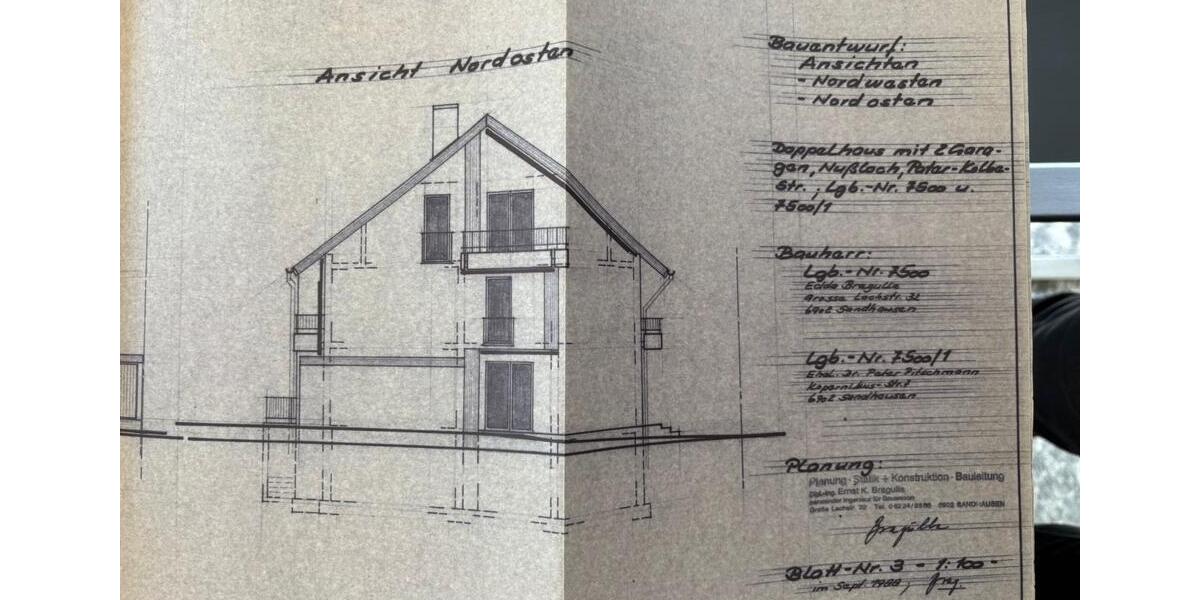 Ansicht Nordosten
Bauentwurf:
Ansichten
- Nordwesten
- Nordosten
Doppelhaus mit 2 Gara-
gen, Nußloch, Pater-Kolbe-
Str., Lgb.-Nr. 7500 u.
7500/1
Bauherr:
Lgb.-Nr. 7500
Edda Bragulla
Grosse Lachstr. 32
6902 Sandhausen
Lgb.-Nr. 7500/1
Ehel. Dr. Peter Pitschmann
Kopernikus-Str. 7
6902 Sandhausen
Planung:
Planung · Statik + Konstruktion · Bauleitung
Dipl.-Ing. Ernst K. Bragulla
beratender Ingenieur für Bauwesen
Große Lachstr. 32 Tel. 06224/2586 6902 SANDHAUSEN
Bragulla
Blatt-Nr. 3 - 1:100 -
im Sept. 1988,